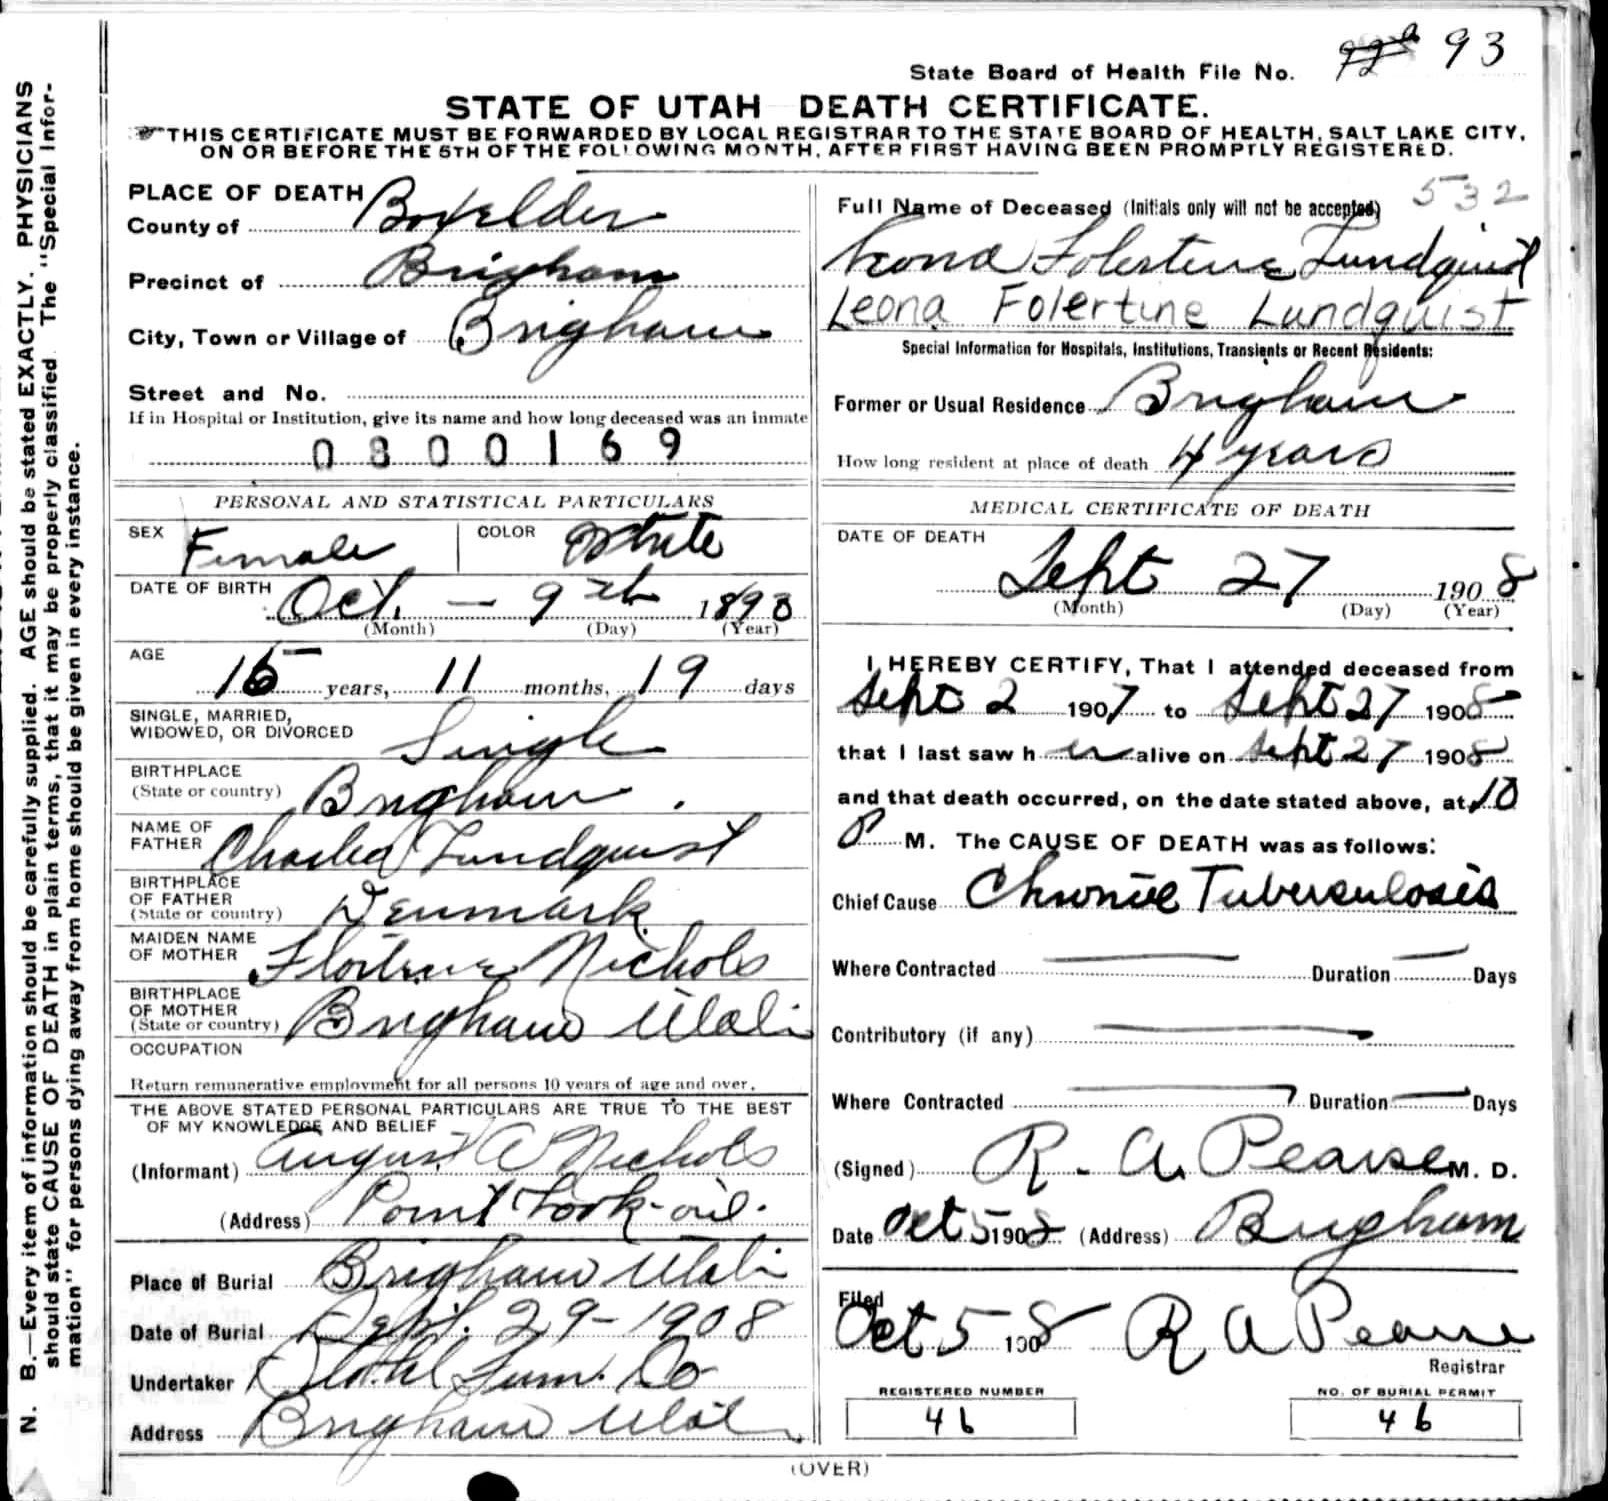 State Board of Health File No. 93
STATE OF UTAH DEATH CERTIFICATE.
THIS CERTIFICATE MUST BE FORWARDED BY LOCAL REGISTRAR TO THE STATE BOARD OF HEALTH, SALT LAKE CITY,
ON OR BEFORE THE 5TH OF THE FOLLOWING MONTH, AFTER FIRST HAVING BEEN PROMPTLY REGISTERED.
N. B.—Every item of information should be carefully supplied. AGE should be stated EXACTLY. PHYSICIANS
should state CAUSE OF DEATH in plain terms, that it may be properly classified. The "Special Infor-
mation" for persons dying away from home should be given in every instance.
PLACE OF DEATH
County of Boxelder
Precinct of Brigham
City, Town or Village of Brigham
Street and No.
If in Hospital or Institution, give its name and how long deceased was an inmate
0800169
PERSONAL AND STATISTICAL PARTICULARS
SEX Female COLOR White
DATE OF BIRTH Oct. — 9th 1893
(Month) (Day) (Year)
AGE
years, 11 months, 19 days
SINGLE, MARRIED,
WIDOWED, OR DIVORCED Single
BIRTHPLACE
(State or country) Brigham
NAME OF
FATHER Charles Lundquist
BIRTHPLACE
OF FATHER
(State or country) Denmark
MAIDEN NAME
OF MOTHER Nichols
BIRTHPLACE
OF MOTHER
(State or country) Brigham Utah
OCCUPATION
Return remunerative employment for all persons 10 years of age and over.
THE ABOVE STATED PERSONAL PARTICULARS ARE TRUE TO THE BEST
OF MY KNOWLEDGE AND BELIEF
(Informant) August A Nichols
(Address) Point Look-out.
Place of Burial Brigham Utah
Date of Burial Sept. 29-1908
Undertaker Furn. Co
Address Brigham Utah
532
Full Name of Deceased (Initials only will not be accepted)
Leona Folertine Lundquist
Leona Folertine Lundquist
Special Information for Hospitals, Institutions, Transients or Recent Residents:
Former or Usual Residence Brigham
How long resident at place of death 4 years
MEDICAL CERTIFICATE OF DEATH
DATE OF DEATH
Sept 27 1908
(Month) (Day) (Year)
I HEREBY CERTIFY, That I attended deceased from
Sept 2 1907 to Sept 27 1908
that I last saw her alive on Sept 27 1908
and that death occurred, on the date stated above, at 10
P M. The CAUSE OF DEATH was as follows:
Chief Cause Chronic Tuberculosis
Where Contracted — Duration — Days
Contributory (if any) —
Where Contracted — Duration — Days
(Signed) R. A. Pearse M. D.
Date Oct 5 1908 (Address) Brigham
Filed
Oct 5 1908 R A Pearse
Registrar
REGISTERED NUMBER
46
NO. OF BURIAL PERMIT
46
(OVER)